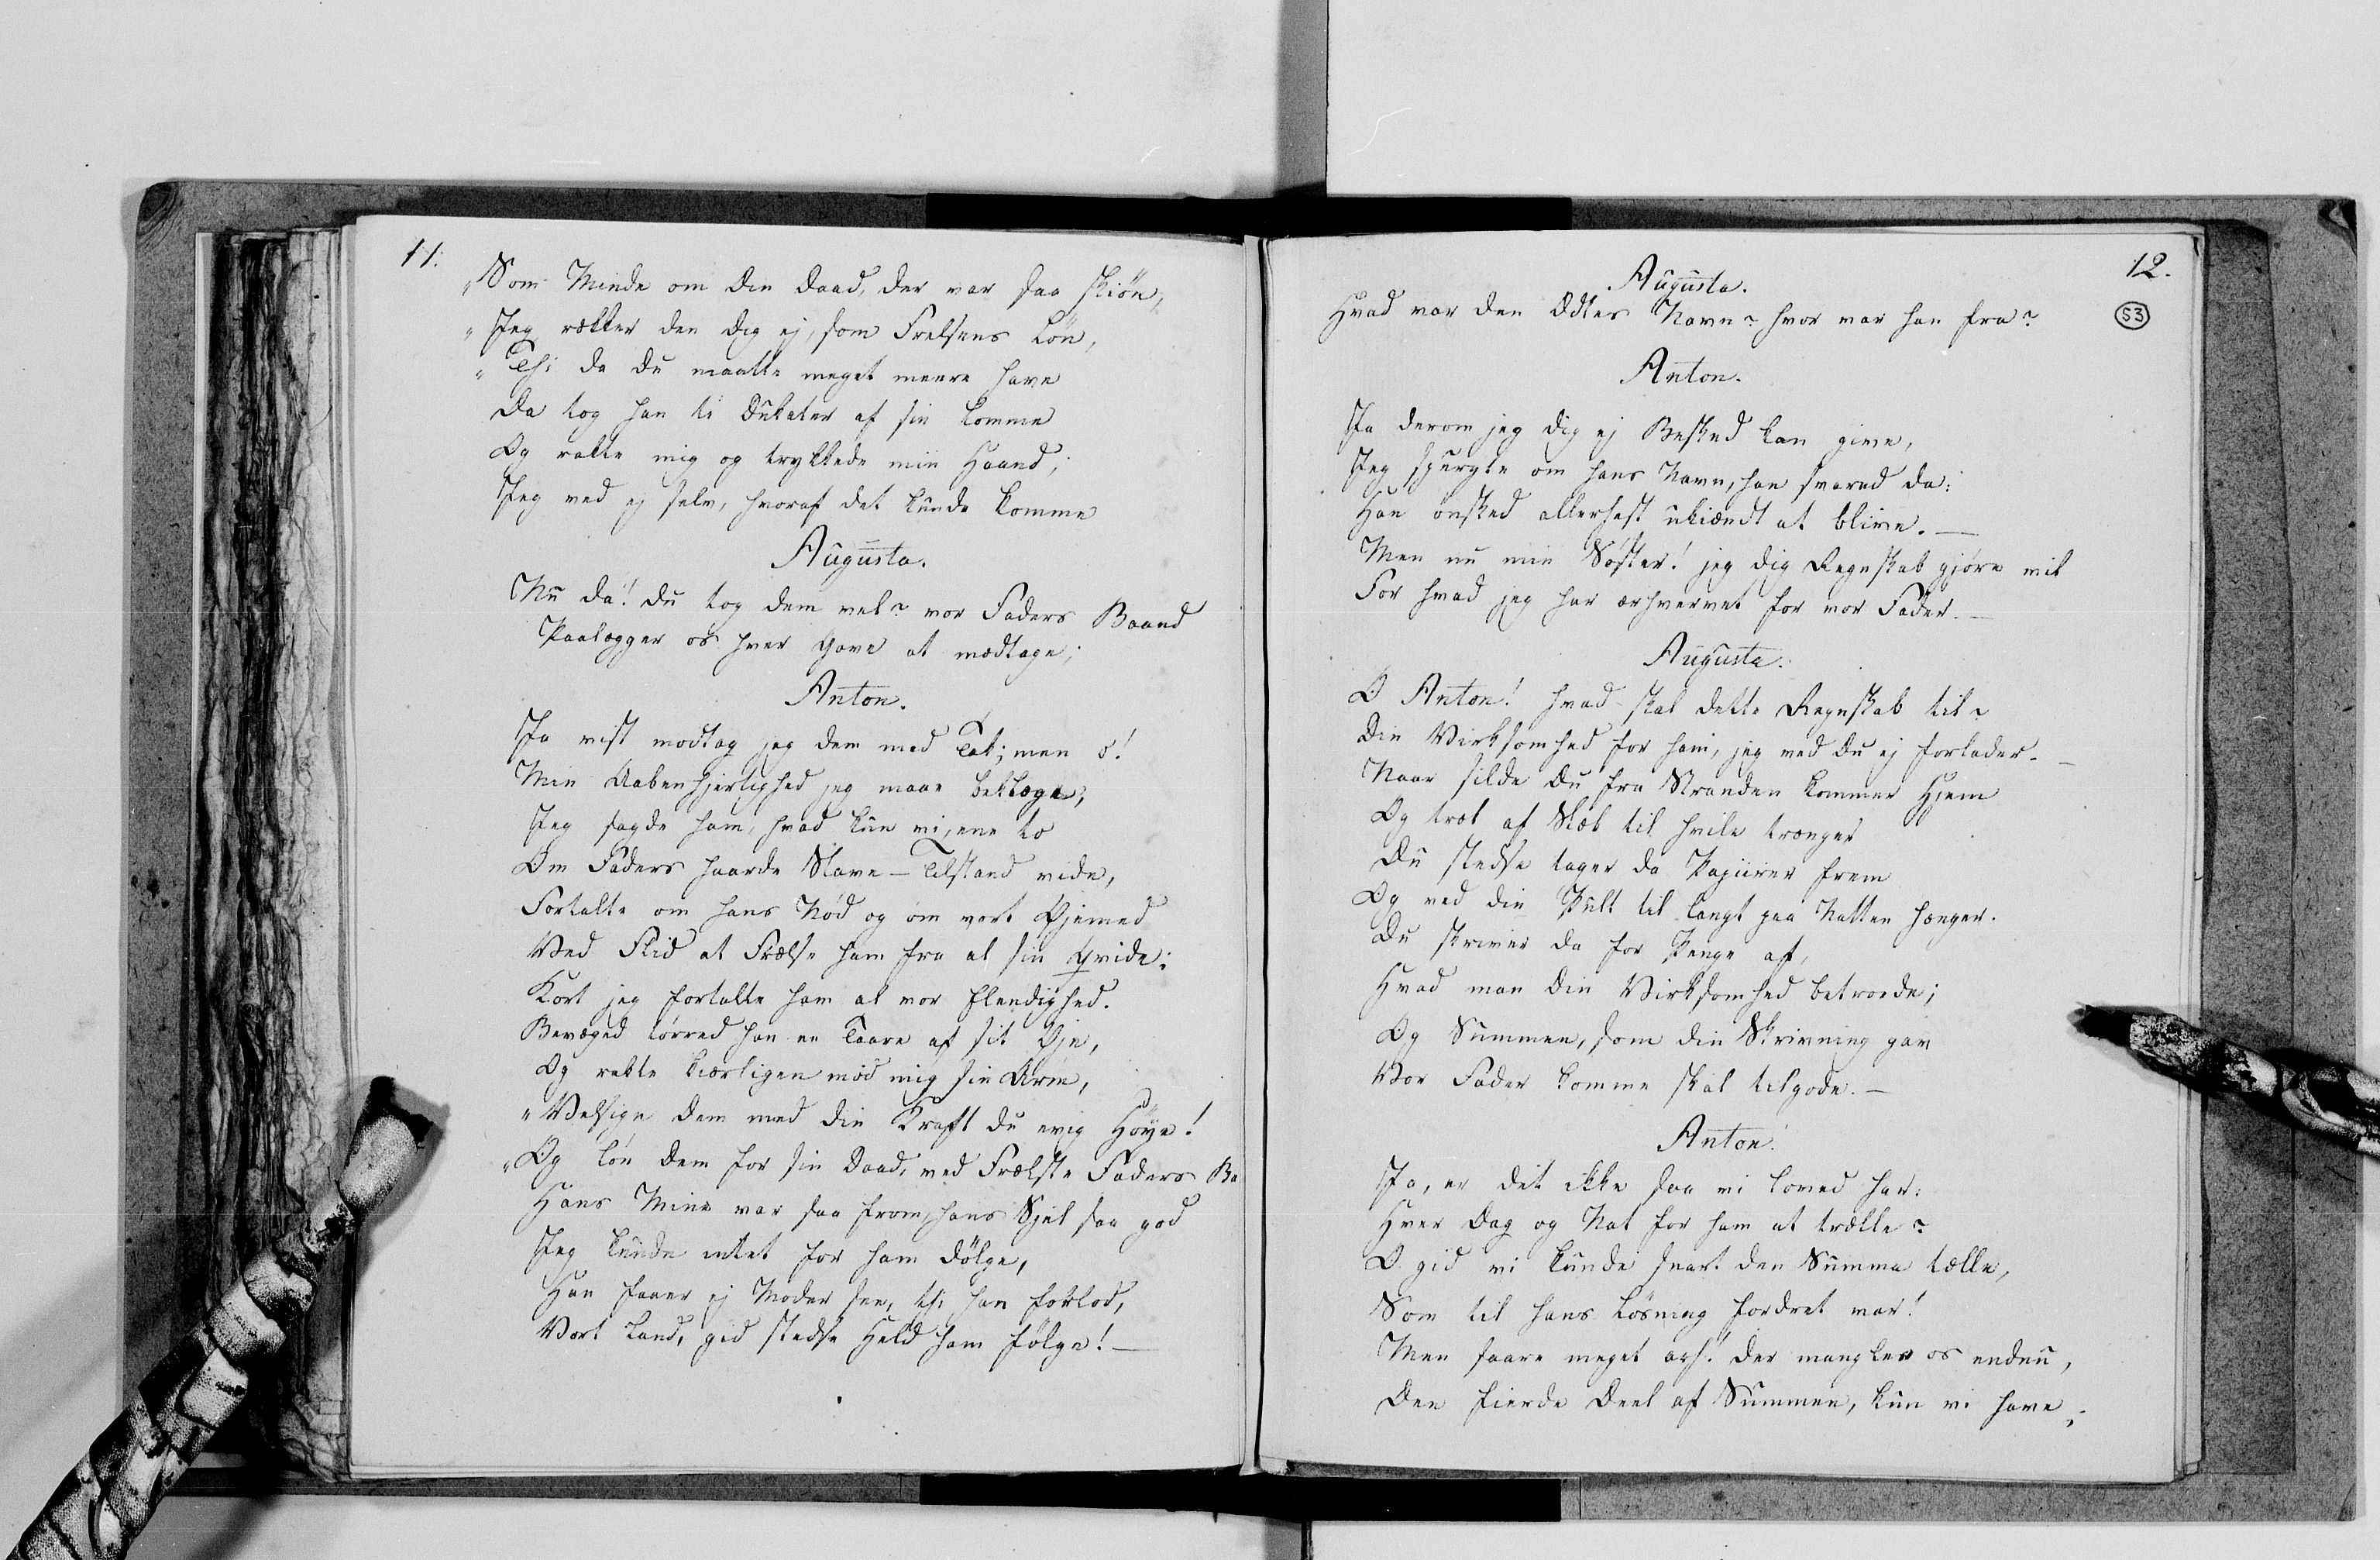 11.
„Som Minde om Din Daad, der var saa skiön,
„Jeg rækker den Dig ej, som Frelsens Lön,
„Thi da Du maatte meget meere have
Da tog han ti Dukater af sin Lomme
Og rakte mig og trykkede min Haand;
Jeg ved ej selv, hvoraf det kunde komme
Augusta.
Nu da! Du tog dem vel? vor Faders Baand
Paalægger os hver Gave at modtage;
Anton.
Ja vist modtog jeg dem med Tak; men o!
Min Aabenhjertighed jeg maae beklage,
Jeg sagde ham, hvad kun vi ene to
Om Faders haarde Slave-Tilstand vide,
Fortalte om hans Nöd og om vort Öjemed
Ved Flid at Frelse ham fra al sin Qvide;
Kort jeg fortalte ham al vor Elendighed.
Bevæged törred han en Taare af sit Öje,
Og rakte kiærligen mod mig sin Arm,
„Velsign dem med din Kraft du evig Höye!
„Og lön dem for sin Daad, med Frelste Faders Ba
Hans Mine var saa from, hans Sjel saa god
Jeg kunde intet for ham dölge,
Han faaer ej Moder see, thi han forlod,
Vort Land, gid stedse Held ham fölge! —
12.
53
Augusta.
Hvad var den Ædles Navn? hvor var han fra?
Anton.
Ja derom jeg dig ej Besked kan give,
Jeg spurgte om hans Navn, han svared da:
Han önsked allerhelst ukiændt at blive. —
Men nu min Söster! jeg dig Regnskab gjöre vil
For hvad jeg har erhvervet for vor Fader. —
Augusta.
O Anton! hvad skal dette Regnskab til?
Din Virksomhed for ham, jeg ved Du ej forlader. —
Naar silde Du fra Stranden kommer Hjem
Og træt af Slæb til hvile trænger
Du stedse tager da Papirer frem
Og ved din Pult til langt paa Natten hænger.
Du skriver da for Penge af,
Hvad man Din Virksomhed betroede;
Og Summen, som din Skrivning gav
Vor Fader komme skal tilgode. —
Anton.
Ja, er det ikke saa vi loved har:
Hver Dag og Nat for ham at trælle?
O gid vi kunde snart den Summa tælle,
Som til hans lösning fordret var!
Men saare meget ach! der mangler os endnu,
Den fierde Deel af Summen, kun vi have;